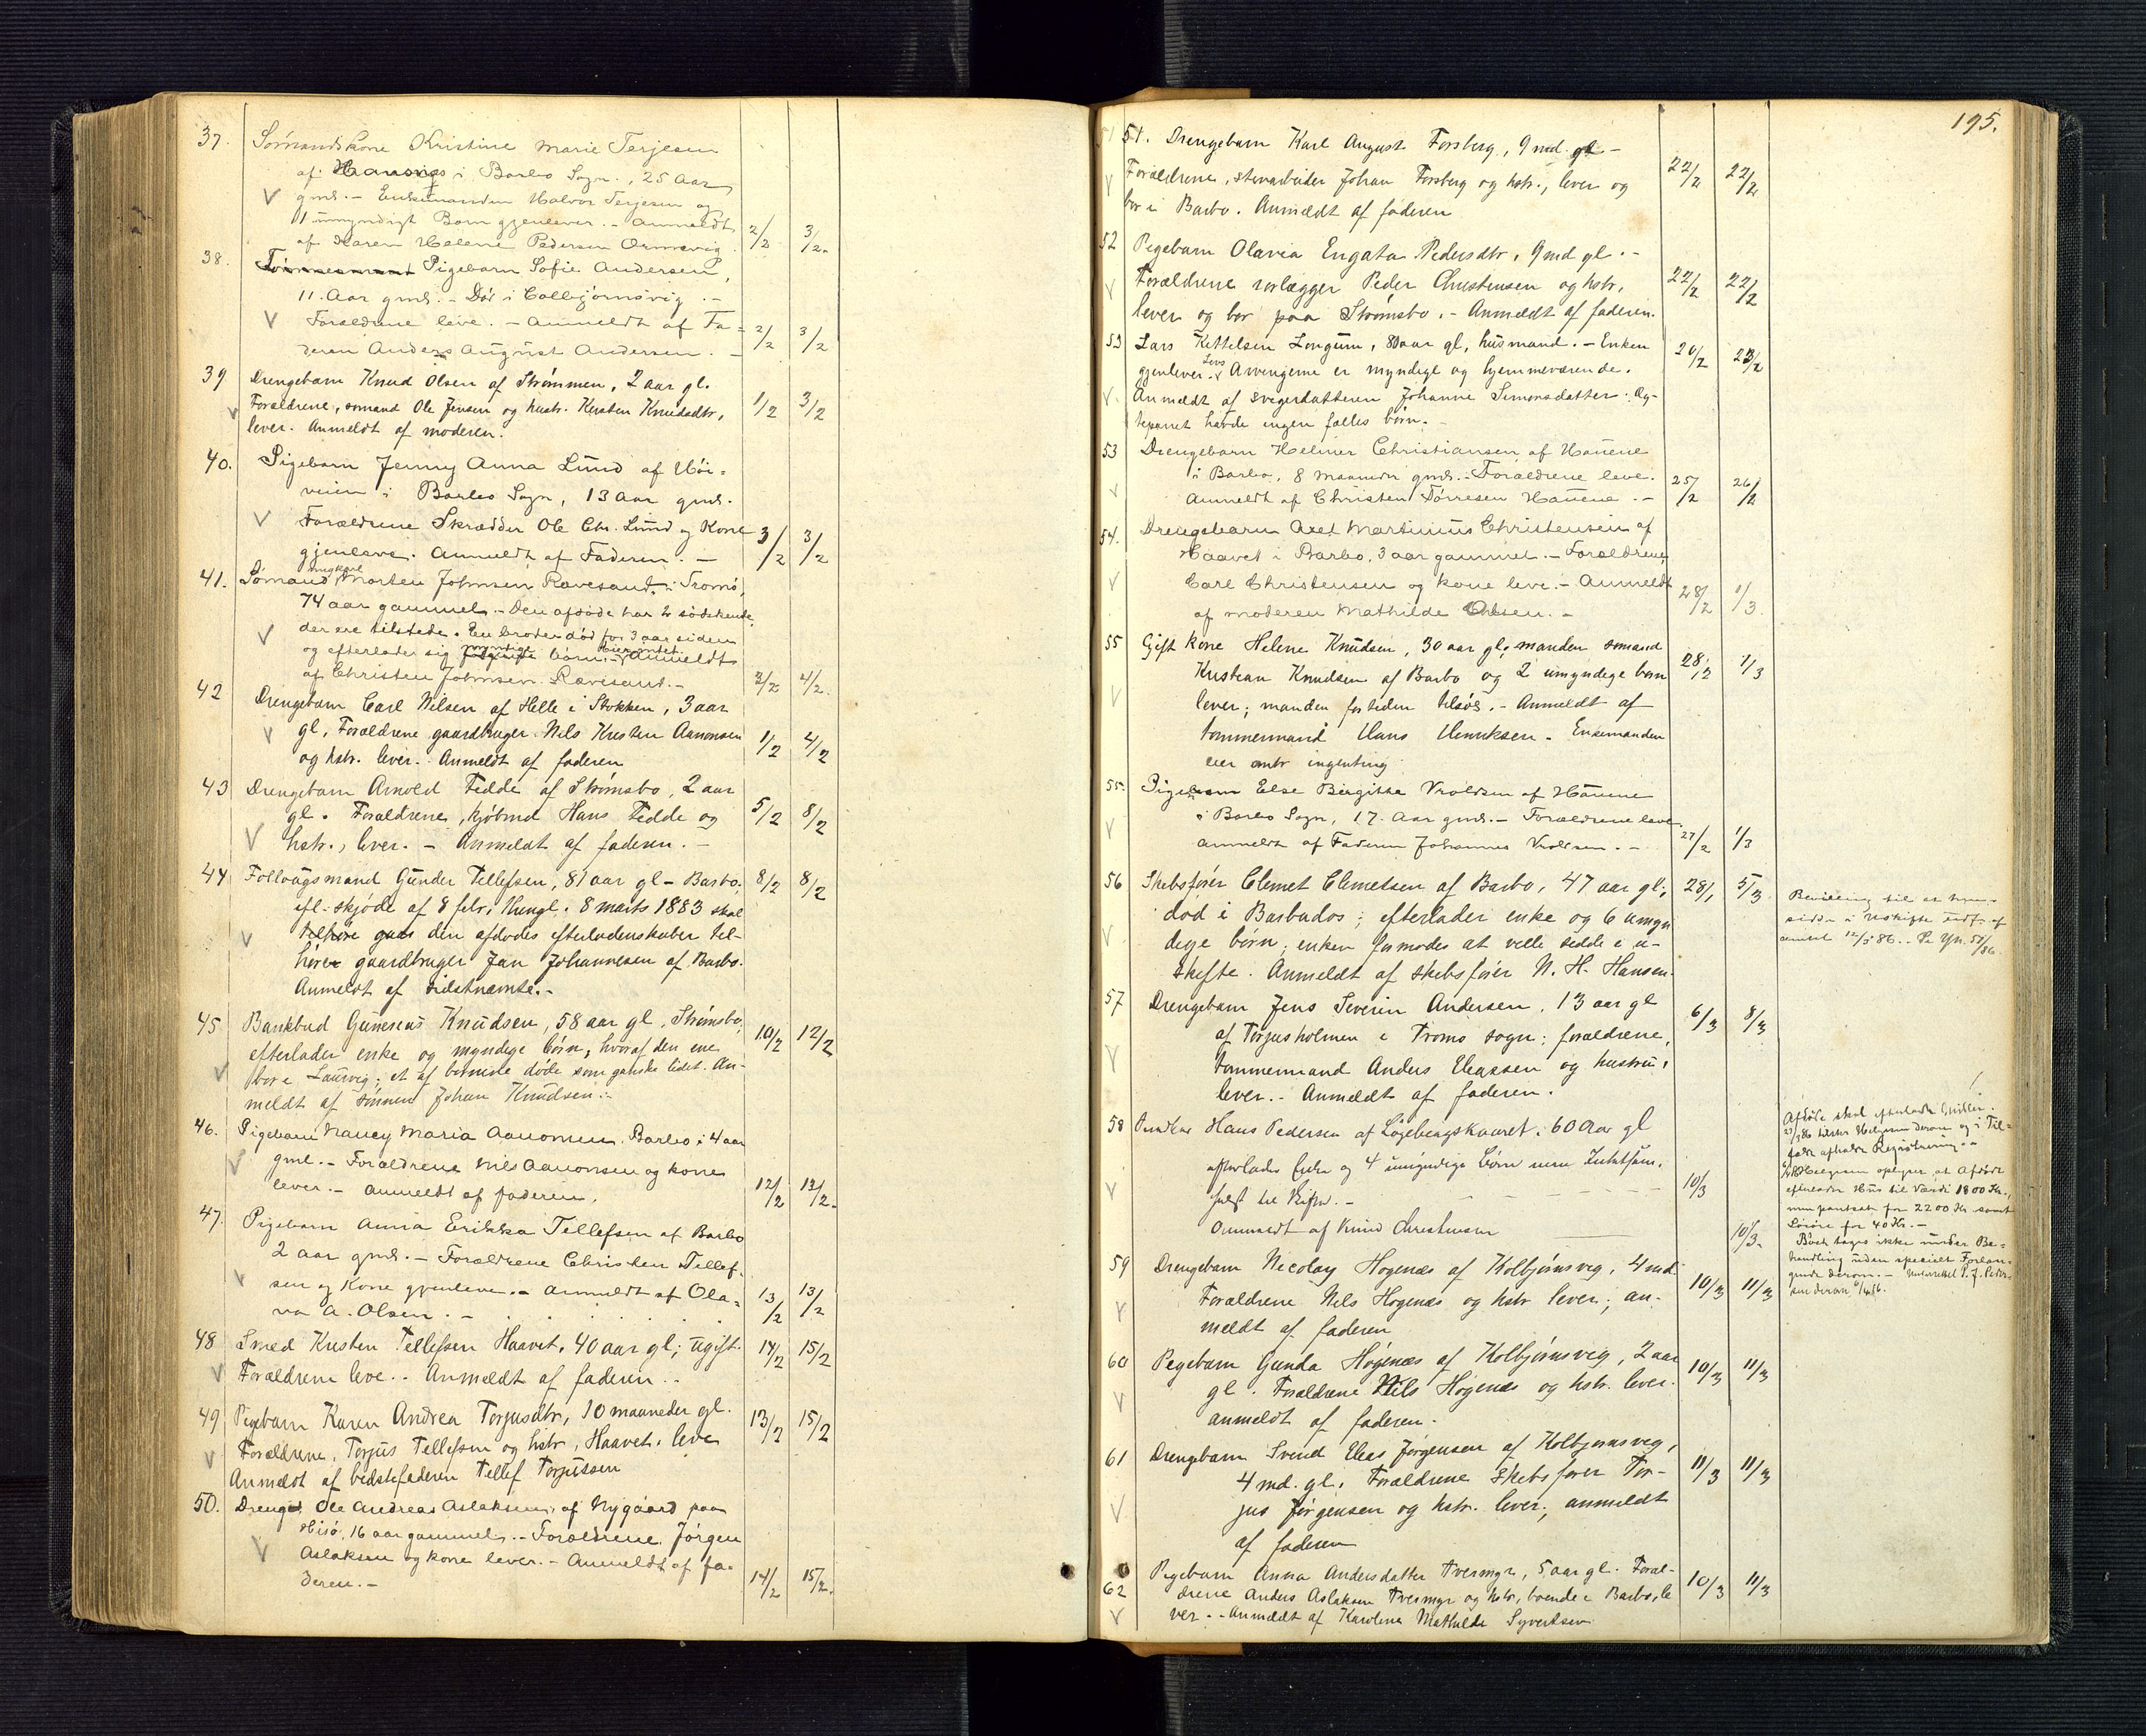 37. Sømandskone Kristine Marie Terjesen
af i Barbo Sogn, 25 Aar
gml. - Enkemanden Halvor Terjesen og
1 umyndigt Barn gjenlever. - Anmeldt
af Karen Helene Pedersen 2/2 3/2.
38. Pigebarn Sofie Andersen,
11 Aar gml. - Død i Colbjørnsvig. -
Forældrene leve. - Anmeldt af Fa-
deren Anders August Andersen. - 2/2 3/2
39 Drengebarn Knud Olsen af Strømmen, 2 aar gl.
Forældrene, sømand Ole Jensen og hustr. Kirsten Knudsdtr, 1/2 3/2
lever. Anmeldt af moderen.
40. Pigebarn Jenny Anna Lund af Høi-
veien i Barbo Sogn, 13 Aar gml.
Forældrene Skrædder Ole Chr. Lund og Kone 3/2 3/2
gjenleve. Anmeldt af Faderen. -
41. Sømand ungkarl Morten Johnsen Ravesand, Tromø,
74 aar gammel. - Den afdøde har 2 sødskende,
der ere tilstede. En broder død for 3 aar siden
og efterlader sig myndige børn. - Anmeldt
af Christen Johnsen Ravesand. - 2/2 4/2.
42 Drengebarn Carl Nilsen af Helle i Stokken, 3 aar
gl, Forældrene gaardbruger Nils Kristen Aanonsen 1/2 4/2
og hstr. lever. - Anmeldt af faderen
43 Drengebarn Arnold Fedde af Strømsbo, 2 aar
gl. Forældrene, kjøbmd Hans Fedde og 5/2 8/2
hstr., lever. - Anmeldt af faderen. -
44 Føllougsmand Gunder Tellefsen, 81 aar gl - Barbo; 8/2 8/2
ifl. skjøde af 8 febr, thingl. 8 marts 1883 skal
den afdødes efterladenskaber til-
høre gaardbruger Jan Johannesen af Barbo.
Anmeldt af sidstnævnte. -
45 Bankbud Gunerius Knudsen, 58 aar gl, Strømsbo, 10/2 12/2
efterlader enke og myndige børn, hvoraf den ene
bor i Laurvig; et af børnene døde som ganske lidet. An-
meldt af sønnen Johan Knudsen. -
46. Pigebarn Nancy Maria Aanonsen Barbo, 4 aar
gml. - Forældrene Nils Aanonsen og kone
lever. - Anmeldt af faderen. 12/2 12/2.
47 Pigebarn Anna Erikka Tellefsen af Barbo
2 aar gml. - Forældrene Christen Tellef-
sen og Kone gjenleve. - Anmeldt af Ola-
va A. Olsen. - 13/2 13/2
48 Smed Kristen Tellefsen Haavet, 40 aar gl; ugift. 14/2 15/2
Forældrene leve. - Anmeldt af faderen. -
49 Pigebarn Karen Andrea Torjusdtr, 10 maaneder gl. 13/2 15/2
Forældrene, Torjus Tellefsen og hstr, Haavet, leve
Anmeldt af bedstefaderen Tellef Torjussen
50. Dreng Ole Andreas Aslaksen, af Nygaard paa
Hisø, 16 aar gammel. - Forældrene, Jørgen
Aslaksen og kone lever. - Anmeldt af fa-
deren. - 14/2 15/2.
195.
51. Drengebarn Karl August Forsberg, 9 md. gl. -
Forældrene, stenarbeider Johan Forsberg og hstr., lever og 22/2 22/2
bor i Barbo. Anmeldt af faderen
52 Pigebarn Olavia Engata Pedersdtr, 9 md gl. -
Forældrene rorlægger Peder Christensen og hstr, 22/2 22/2
lever og bor paa Strømsbo. - Anmeldt af faderen.
53 Lars Kettelsen Longum, 80 aar gl, husmand. - Enken 20/2 23/2
gjenlever. Lars Arvingerne er myndige og hjemmeværende.
Anmeldt af svigerdatteren Johanne Simonsdatter. Æg-
teparret havde ingen fælles børn. -
53 Drengebarn Helmer Christiansen af Hauene
i Barbo, 8 maaneder gml. - Forældrene leve. 25/2 26/2
Anmeldt af Christen Tønnesen Hauene. -
54. Drengebarn Axel Martinius Christensen af
Haavet i Barbo, 3 aar gammel. - Forældrene,
Carl Christensen og kone leve. - Anmeldt 28/2 1/3.
af moderen Mathilde Olsen. -
55 Gift kone Helene Knudsen, 30 aar gl; manden sømand
Kristian Knudsen af Barbo og 2 umyndige børn 28/2 1/3
lever; manden for tiden tilsøs. - Anmeldt af
tømmermand Hans Henriksen. Enkemanden
eier ingenting
55. Pige Else Birgitte Vroldsen af Hauene
i Barbo Sogn, 17 Aar gml. - Forældrene leve.
Anmeldt af Faderen Johannes Vroldsen. - 27/2 1/3
56 Skibsfører Clemet Clemetsen af Barbo, 47 aar gl; 28/1 5/3
død i Barbados; efterlader enke og 6 umyn-
dige børn; enken formodes at ville sidde i u-
skifte. Anmeldt af skibsfører N. H. Hansen.
Bevilling til at hen-
sidde i uskifte udf. af
amtet 12/3 86.
57 Drengebarn Jens Severin Andersen, 13 aar gl 6/3 8/3
af Torjusholmen i Tromø sogn; forældrene,
tømmermand Anders Eliassen og hustru,
lever. - Anmeldt af faderen.
58 Hans Pedersen af Løgebergskaaret, 60 Aar gl
efterlader Enke og 4 umyndige børn
10/3
Anmeldt af Knud Christensen 10/3.
Afdøde skal efterlade
afholde Registrering. -
Helgesen oplyser, at Afdøde
efterlader Hus til Værdi 1800 Kr.,
men pantsat for 2200 Kr. samt
Løsøre for 40 Kr. -
Boet tages ikke under Be-
handling uden specielt Forlan-
gende derom. -
59 Drengebarn Nicolay Høgenæs af Kolbjørnsvig, 4 md 10/3 11/3
Forældrene Nils Høgenæs og hstr lever; an-
meldt af faderen
60 Pigebarn Gunda Høgenæs af Kolbjørnsvig, 2 aar 10/3 11/3
gl. Forældrene Nils Høgenæs og hstr. lever.
anmeldt af faderen.
61 Drengebarn Svend Elias Jørgensen af Kolbjørnsvig, 11/3 11/3
4 md. gl, Forældrene skibsfører Tor-
jus Jørgensen og hstr. lever; anmeldt
af faderen
62 Pigebarn Anna Andersdatter Tvermyr, 5 aar gl. Foræl- 10/3 11/3
drene Anders Aslaksen Tvermyr og hstr, boende i Barbo, le
ver. - Anmeldt af Karoline Mathilde Syvertsen